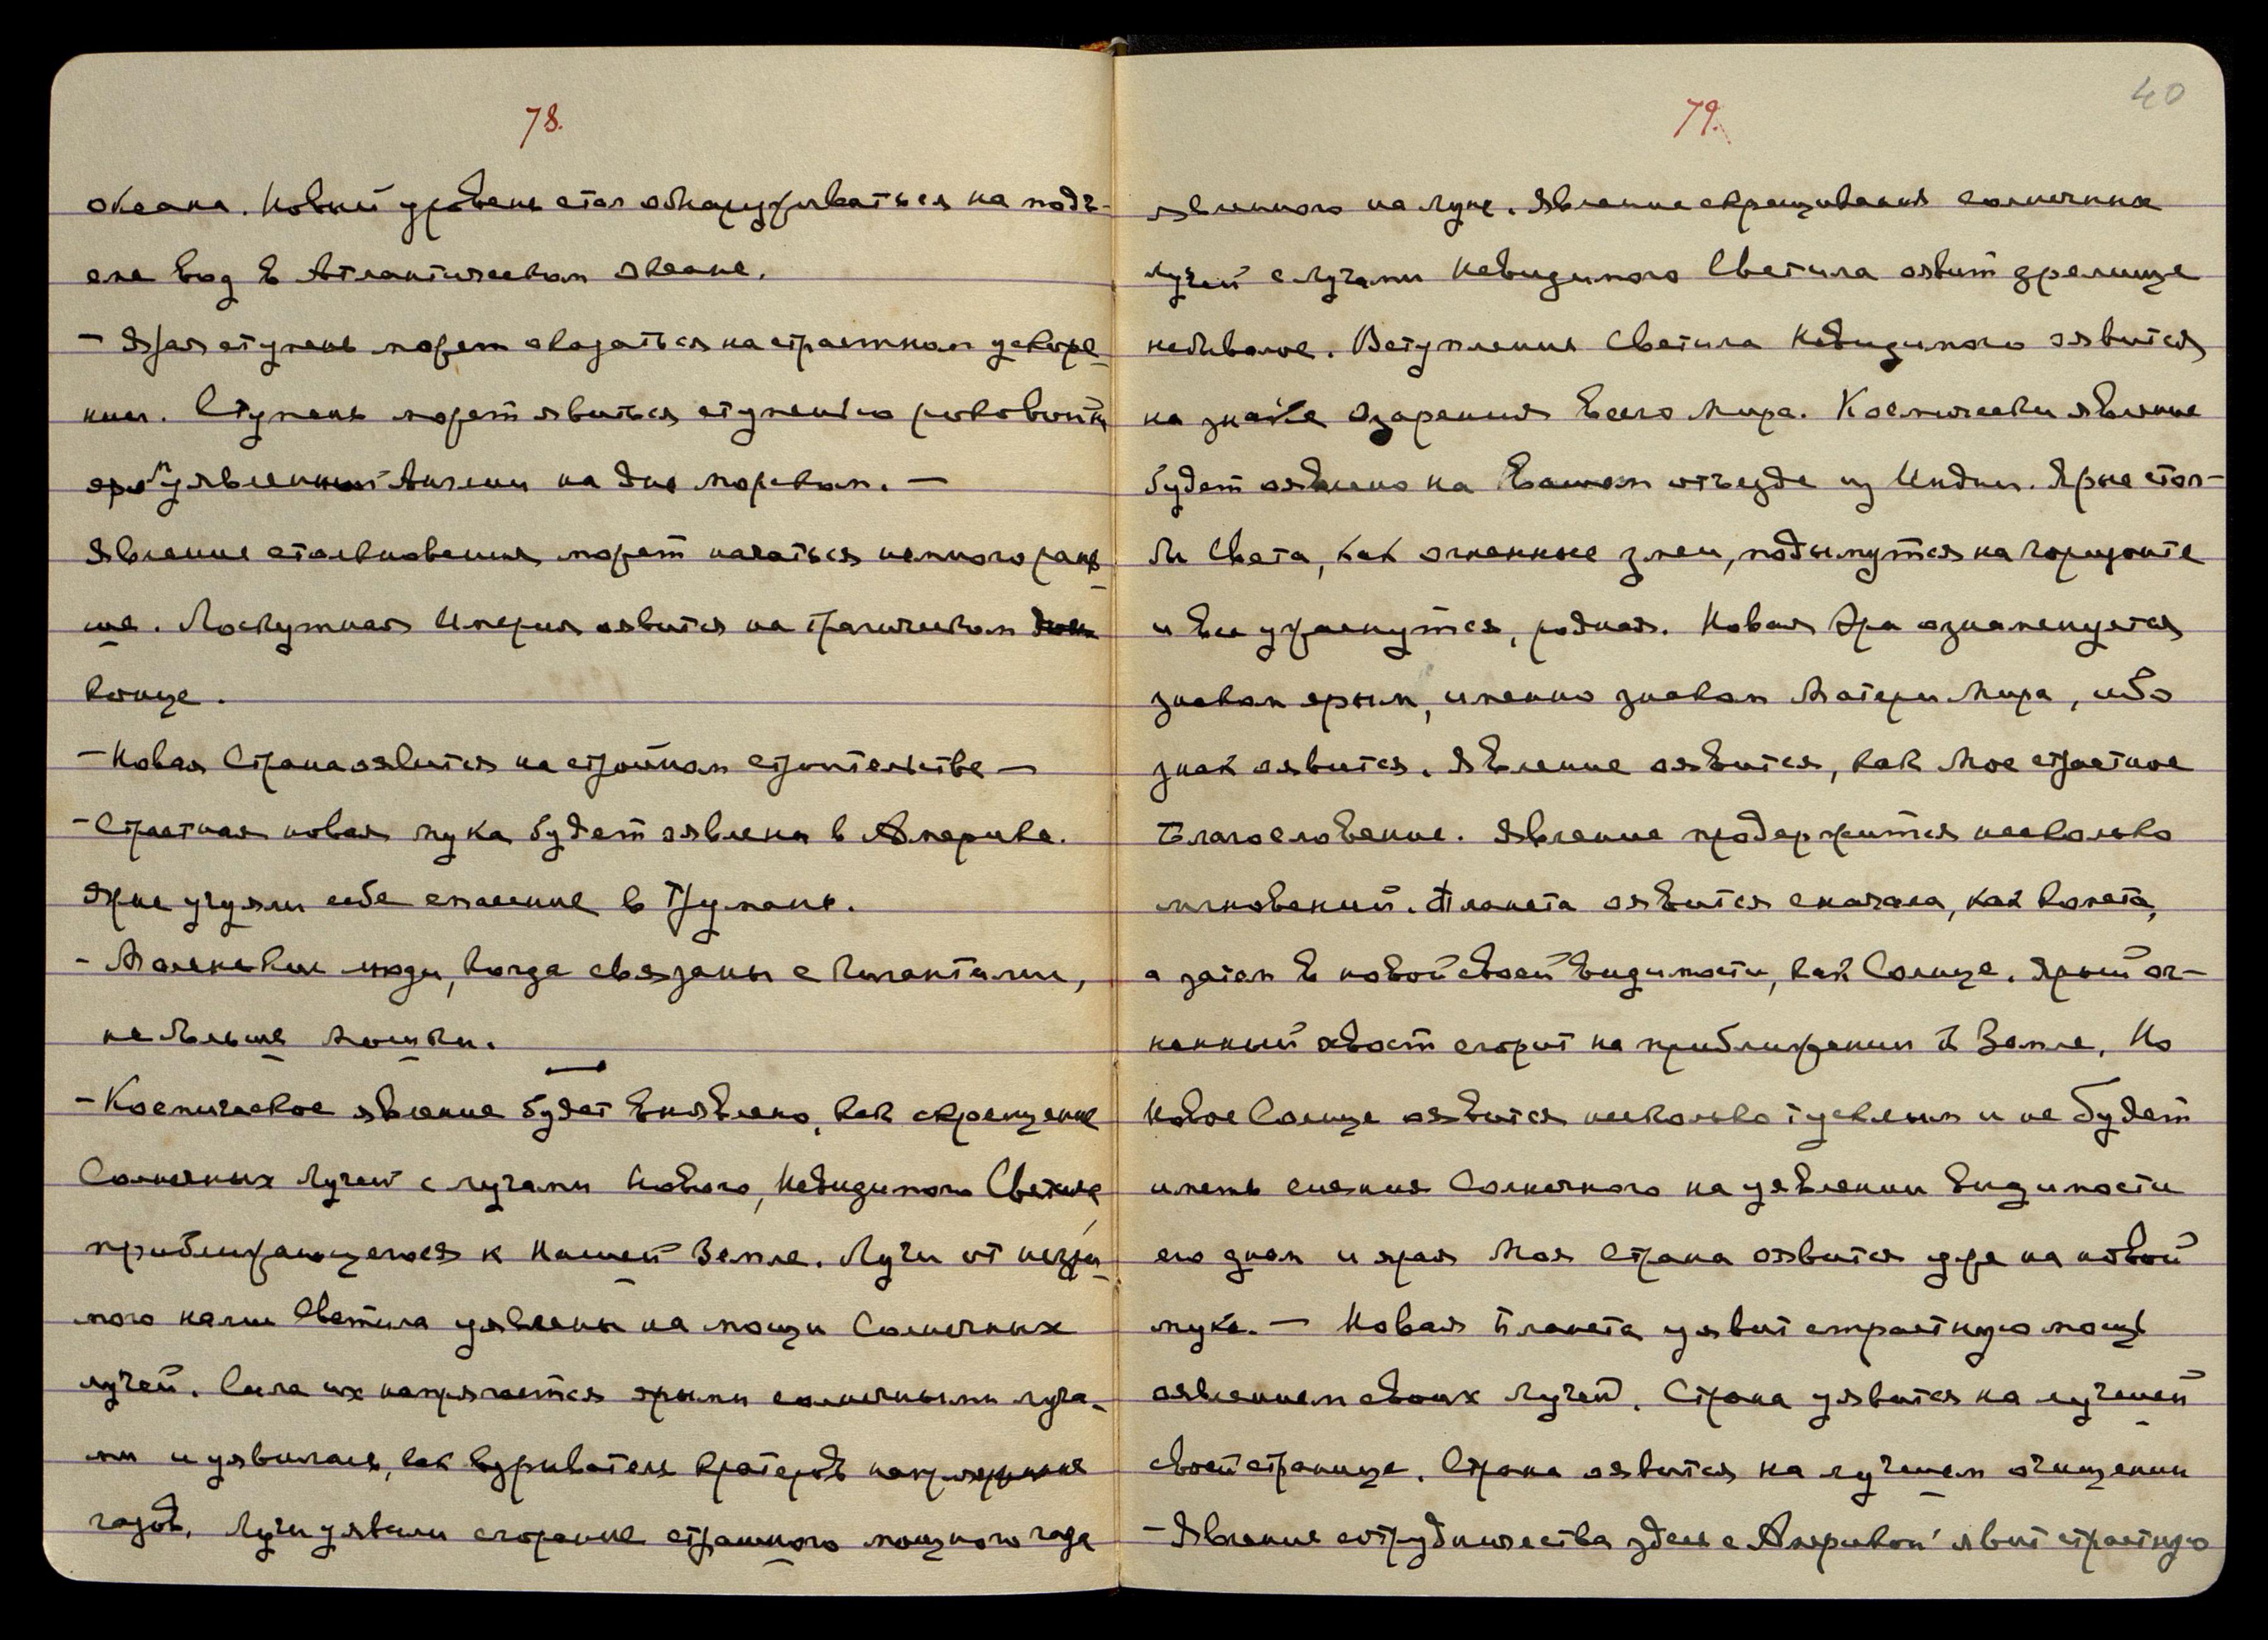 78.
океана. Новый уровень стал обнаруживаться на подъ-
еме вод в Атлантическом океане.
- Ярая ступень может оказаться на страстном ускоре-
нии. Ступень может явиться ступенью роковой
уявленной Англии на дне морском. -
Явление столкновения может начаться немного рань-
ше. Лоскутная Империя оявится на трагическом
конце.
- Новая Страна оявится на стройном строительстве -
- Страстная новая мука будет оявлена в Америке.
Ярые учуяли себе спасение в Трумане.
- Маленькие люди, когда связаны с Гигантами,
не больше Мошки.
- Космическое явление будет выявлено, как скрещение
Солнечных Лучей с лучами Нового, Невидимого Светила,
приближающегося к нашей Земле. Лучи от незри-
мого нами Светила уявлены на мощи Солнечных
лучей. Сила их напрягается ярыми солнечными луча-
ми и уявилась, как взрыватель кратеров напряжения
газов. Лучи уявили сгорание страшного мощного газа
79.
40
явленного на Луне. Явление скрещивания солнечных
лучей с Лучами Невидимого Светила оявит зрелище
небывалое. Вступление Светила Невидимого оявится
на знаке Озарения всего Мира. Космически явление
будет оявлено на Вашем отъезде из Индии. Ярые стол-
бы Света, как огненные змеи, подымутся на горизонте
и все ужаснутся, родная. Новая Эра ознаменуется
знаком ярым, именно знаком Матери Мира, ибо
знак оявится. Явление оявится, как Мое страстное
Благословение. Явление продержится несколько
мгновений. Планета оявится сначала, как комета,
а затем в новой своей видимости, как Солнце. Ярый ог-
ненный хвост сгорит на приближении к Земле. Но
Новое Солнце оявится несколько тусклым и не будет
иметь сияния Солнечного на уявлении видимости
его днем и ярая Моя Страна оявится уже на новой
муке. - Новая Планета уявит страстную мощь
оявлением своих Лучей. Страна уявится на лучшей
своей странице. Страна оявится на лучшем очищении
- Явление сотрудничества здесь с Америкой явит страстную